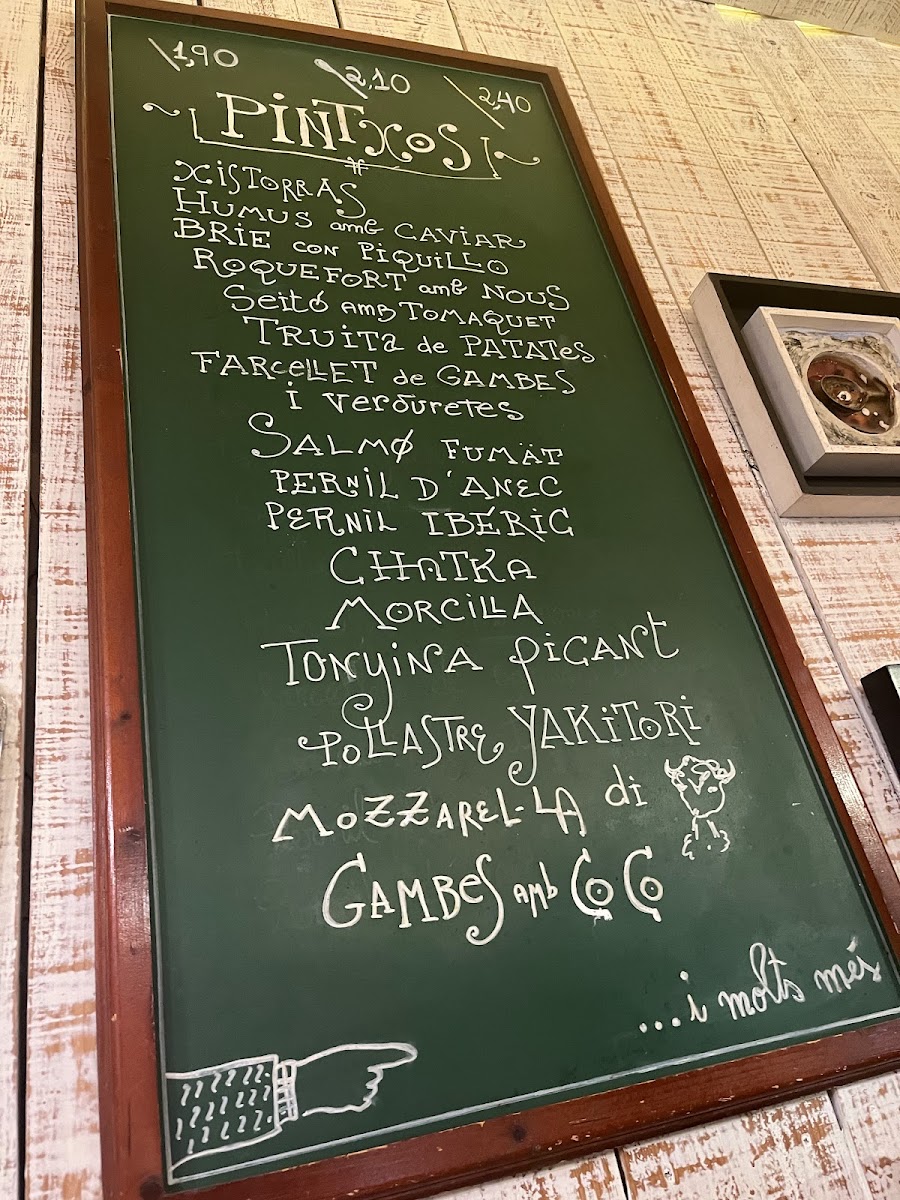 1,90 2,10 2,40
PINTXOS
XISTORRAS
HUMUS amb CAVIAR
BRIE CON PIQUILLO
ROQUEFORT amb NOUS
Seitó AMB TOMAQUET
TRUITa de PATATes
FARCeLLET de GAMBES
i verduretes
SALMØ FUMÄT
PERNIL D'ANEC
PERNIL IBÉRIC
CHATKA
MORCILLA
TONyiNA PICANT
POLLASTRE YAKITORI
MOZZAREL-LA di
GAMBES AMb COCO
...i molts més